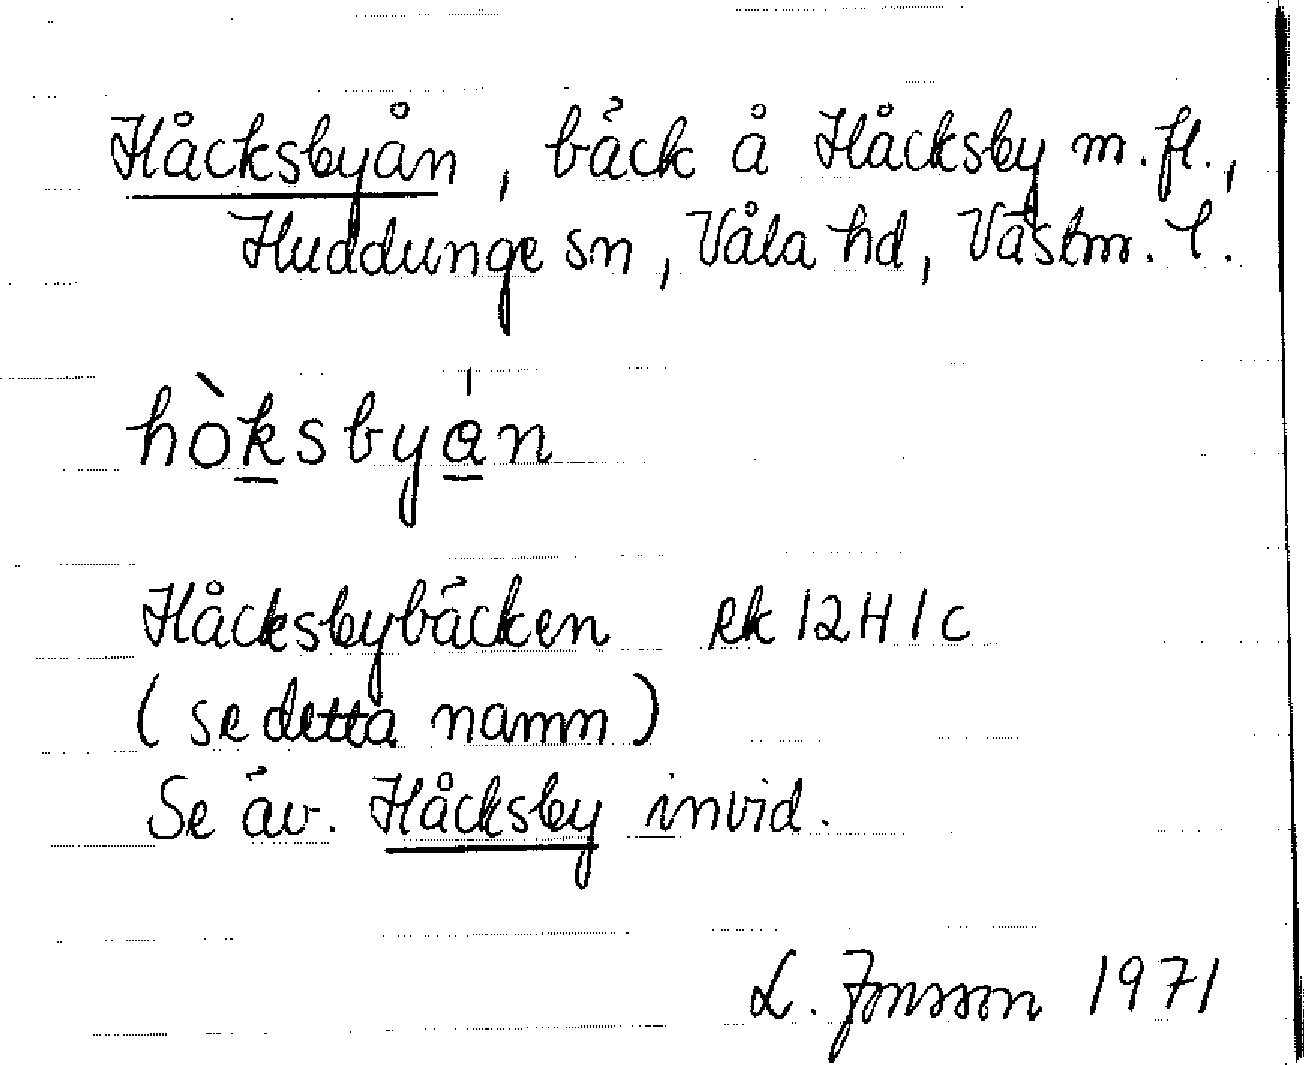 Håcksbyån, bäck å Håcksby m.fl.,
Huddunge sn, Våla hd, Västm. l.
hòksbyán
Håcksbybäcken rk 12H1c
(se detta namn)
Se äv. Håcksby invid.
L. Jonsson 1971